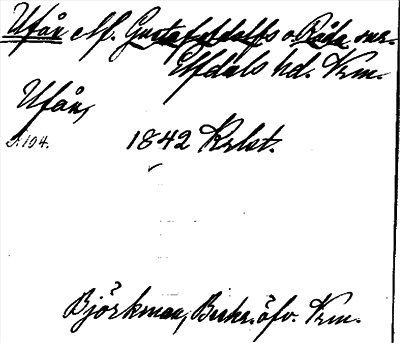 Ufån elf. Gustafadolfs o Råda snr.
Elfdals hd. Vrm.
Ufån,
S. 104. 1842 Krlst.
Björkman, Beskr. öfv. Vrm.